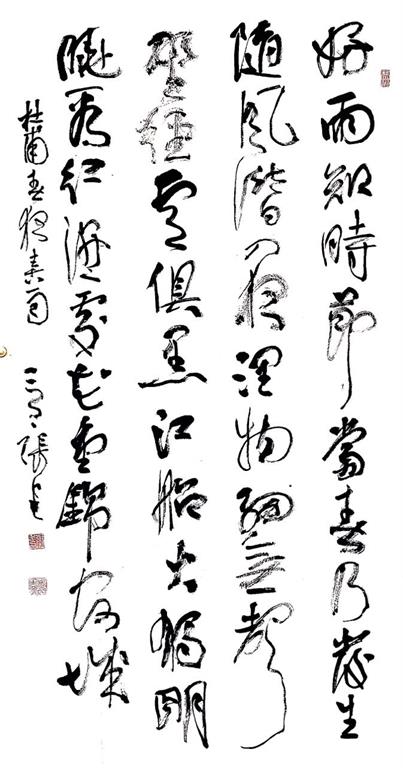 好雨知時節當春乃發生
隨風潛入夜潤物細無聲
野徑雲俱黑江船火獨明
曉看紅濕處花重錦官城
杜甫春夜喜雨 張